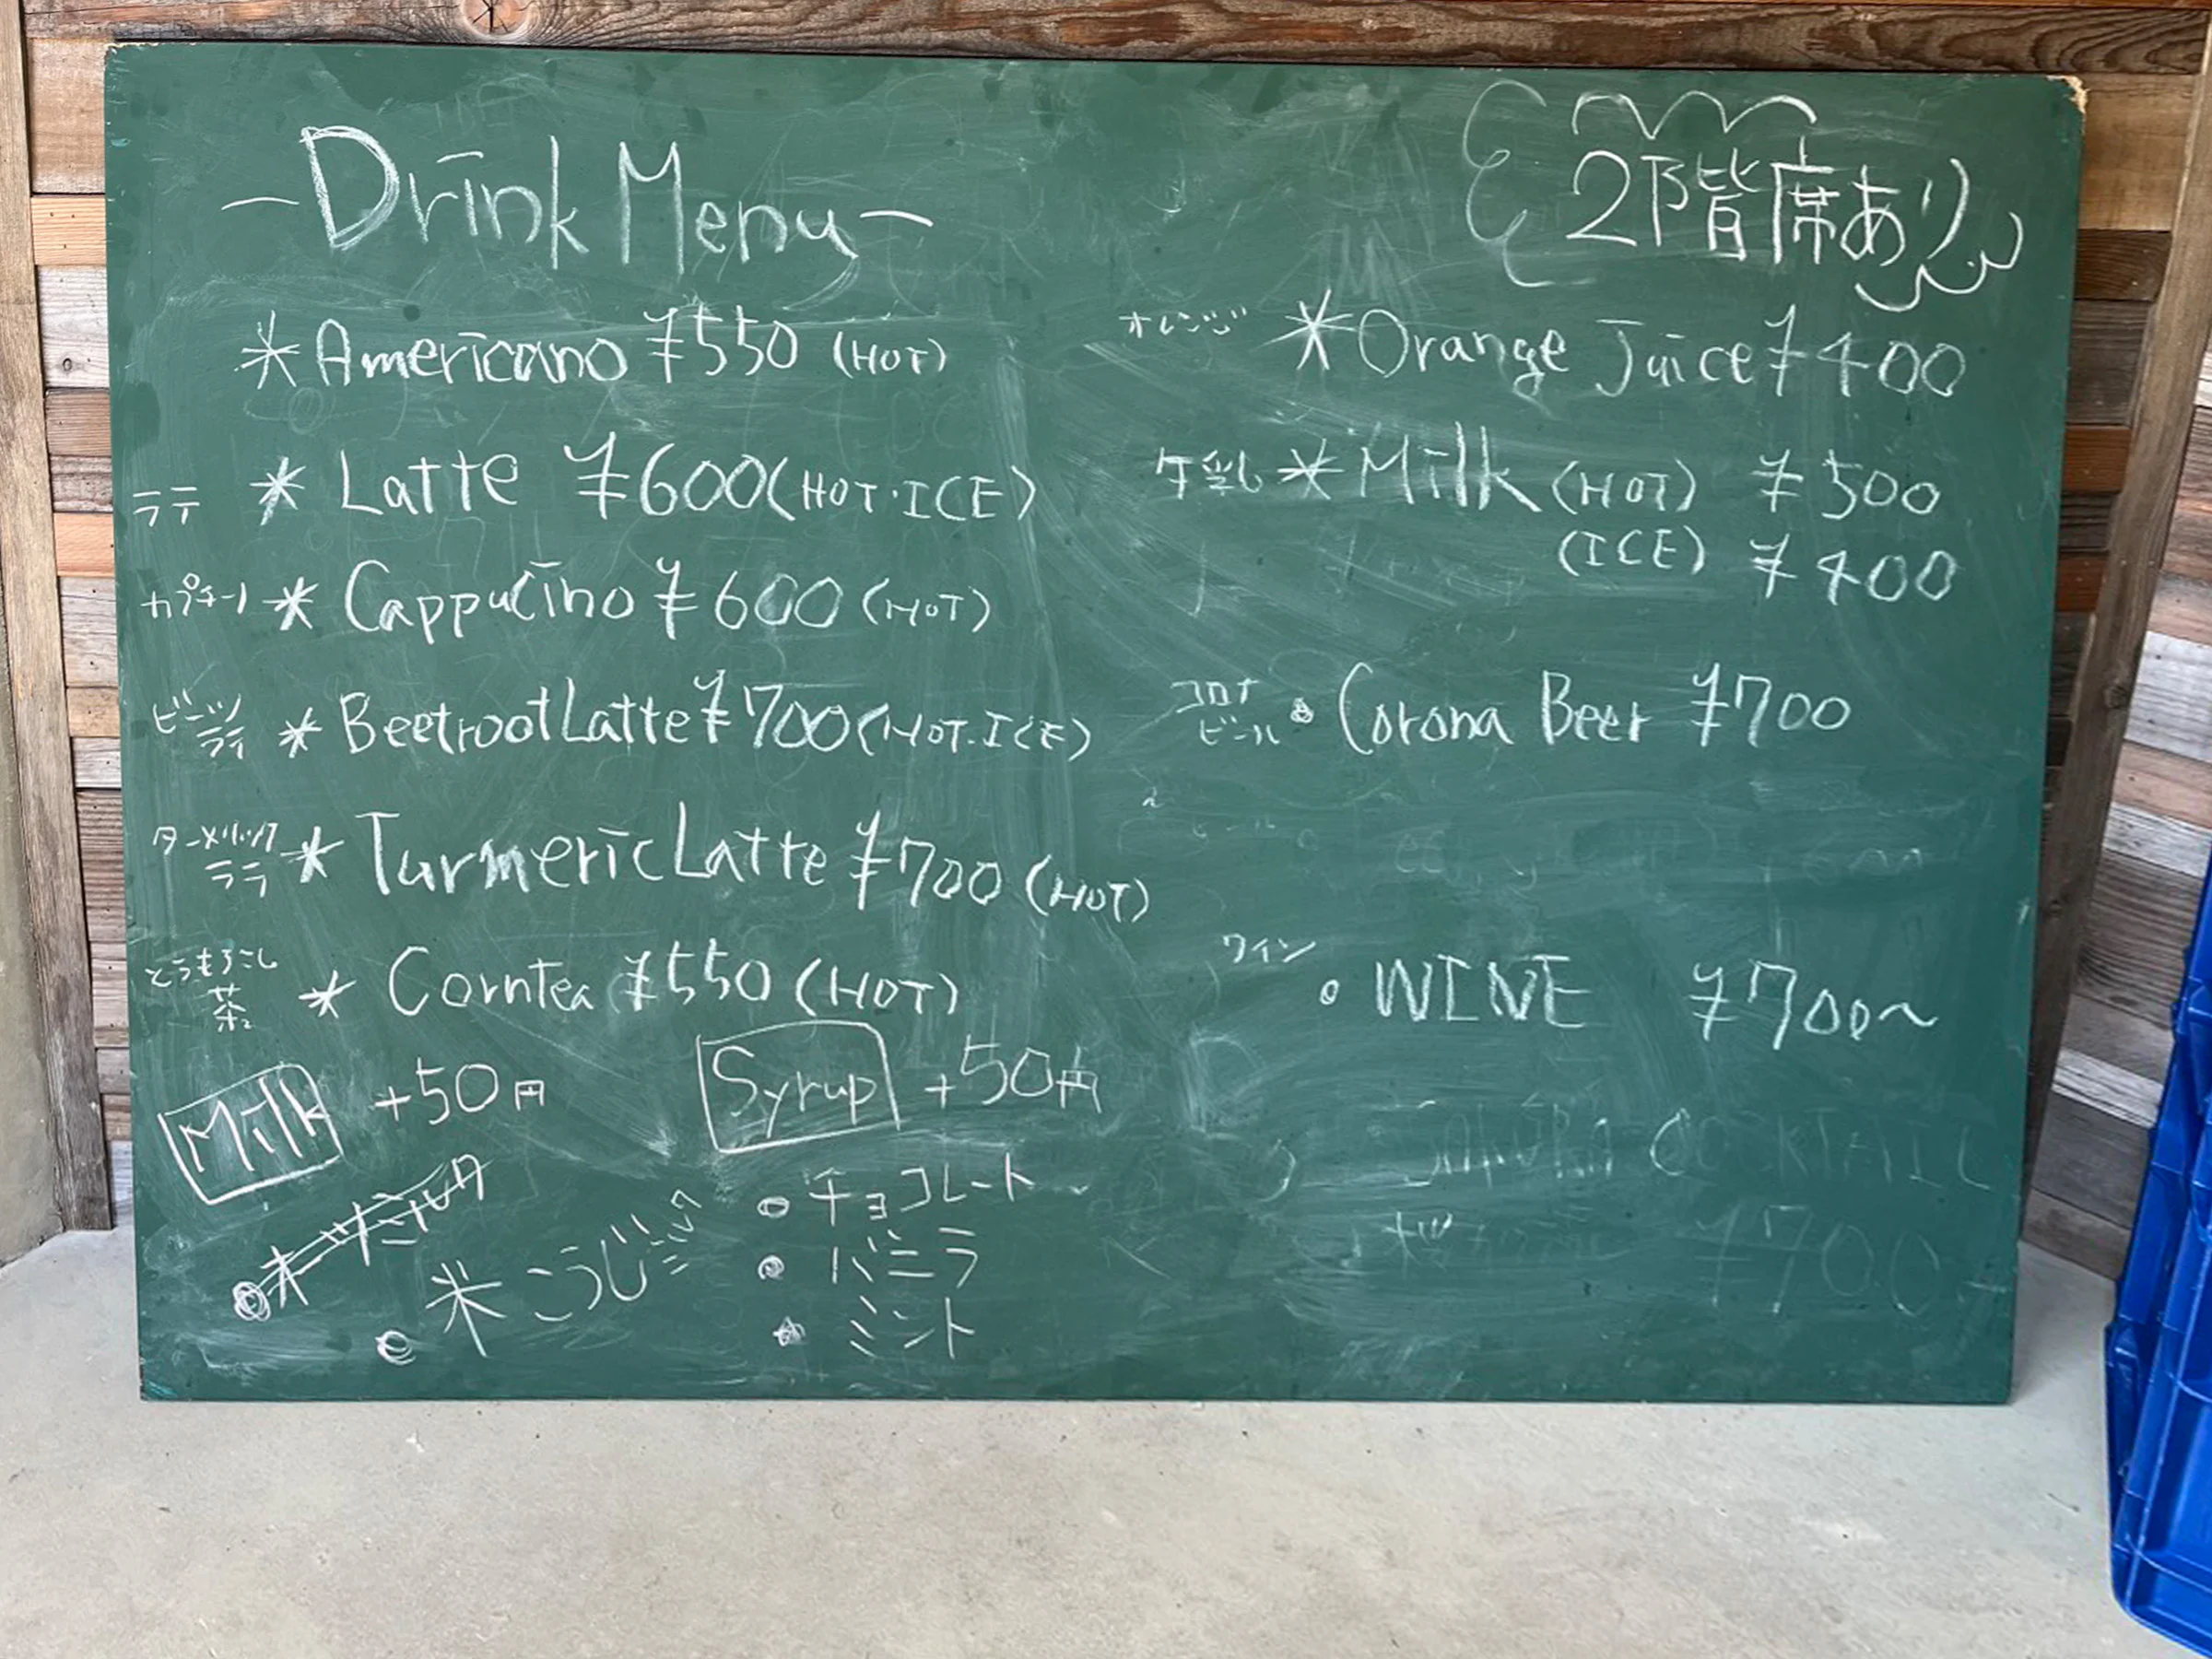 - Drink Menu -
* Americano ¥550 (HOT)
ラテ * Latte ¥600 (HOT・ICE)
カプチーノ * Cappucino ¥600 (HOT)
ビーツ
ラテ * Beetroot Latte ¥700 (HOT・ICE)
ターメリック
ララ * Turmeric Latte ¥700 (HOT)
とうもろこし
茶 * Corntea ¥550 (HOT)
Milk +50円
米こうじミルク
Syrup +50円
・チョコレート
・バニラ
・ミント
2階席あり
オレンジ * Orange Juice ¥400
牛乳 * Milk (HOT) ¥500
(ICE) ¥400
コロナ
ビール ・Corona Beer ¥700
ワイン
・WINE ¥700〜
SAKURA COCKTAIL
¥700